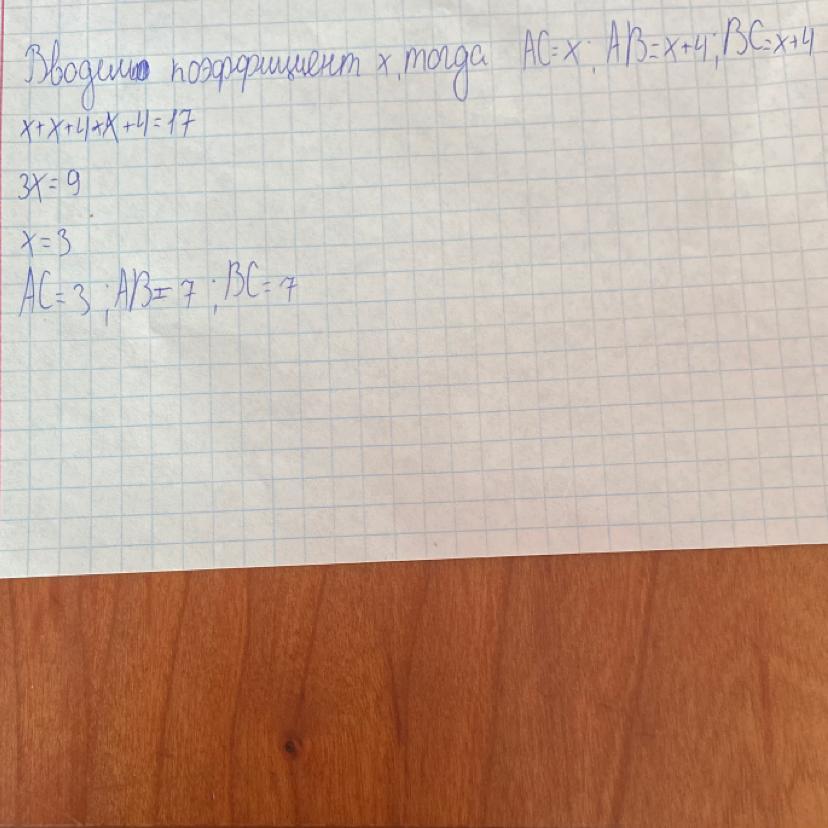 Вводим коэффициент x, тогда AC=x; AB=x+4; BC=x+4
x+x+4+x+4=17
3x=9
x=3
AC=3; AB=7; BC=7